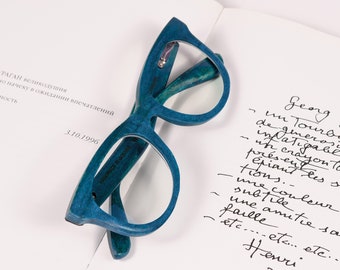 УРАГАН великодушия
но начеку в ожидании впечатлений
ность
3.10.1990
Georg
- un Tourbi
de générosi
infatigable
- un crayon to
présent
épiant les s
tions..
- une couleur
subtile
- une amitié sa
faille
- etc.... etc... etc..
Henri